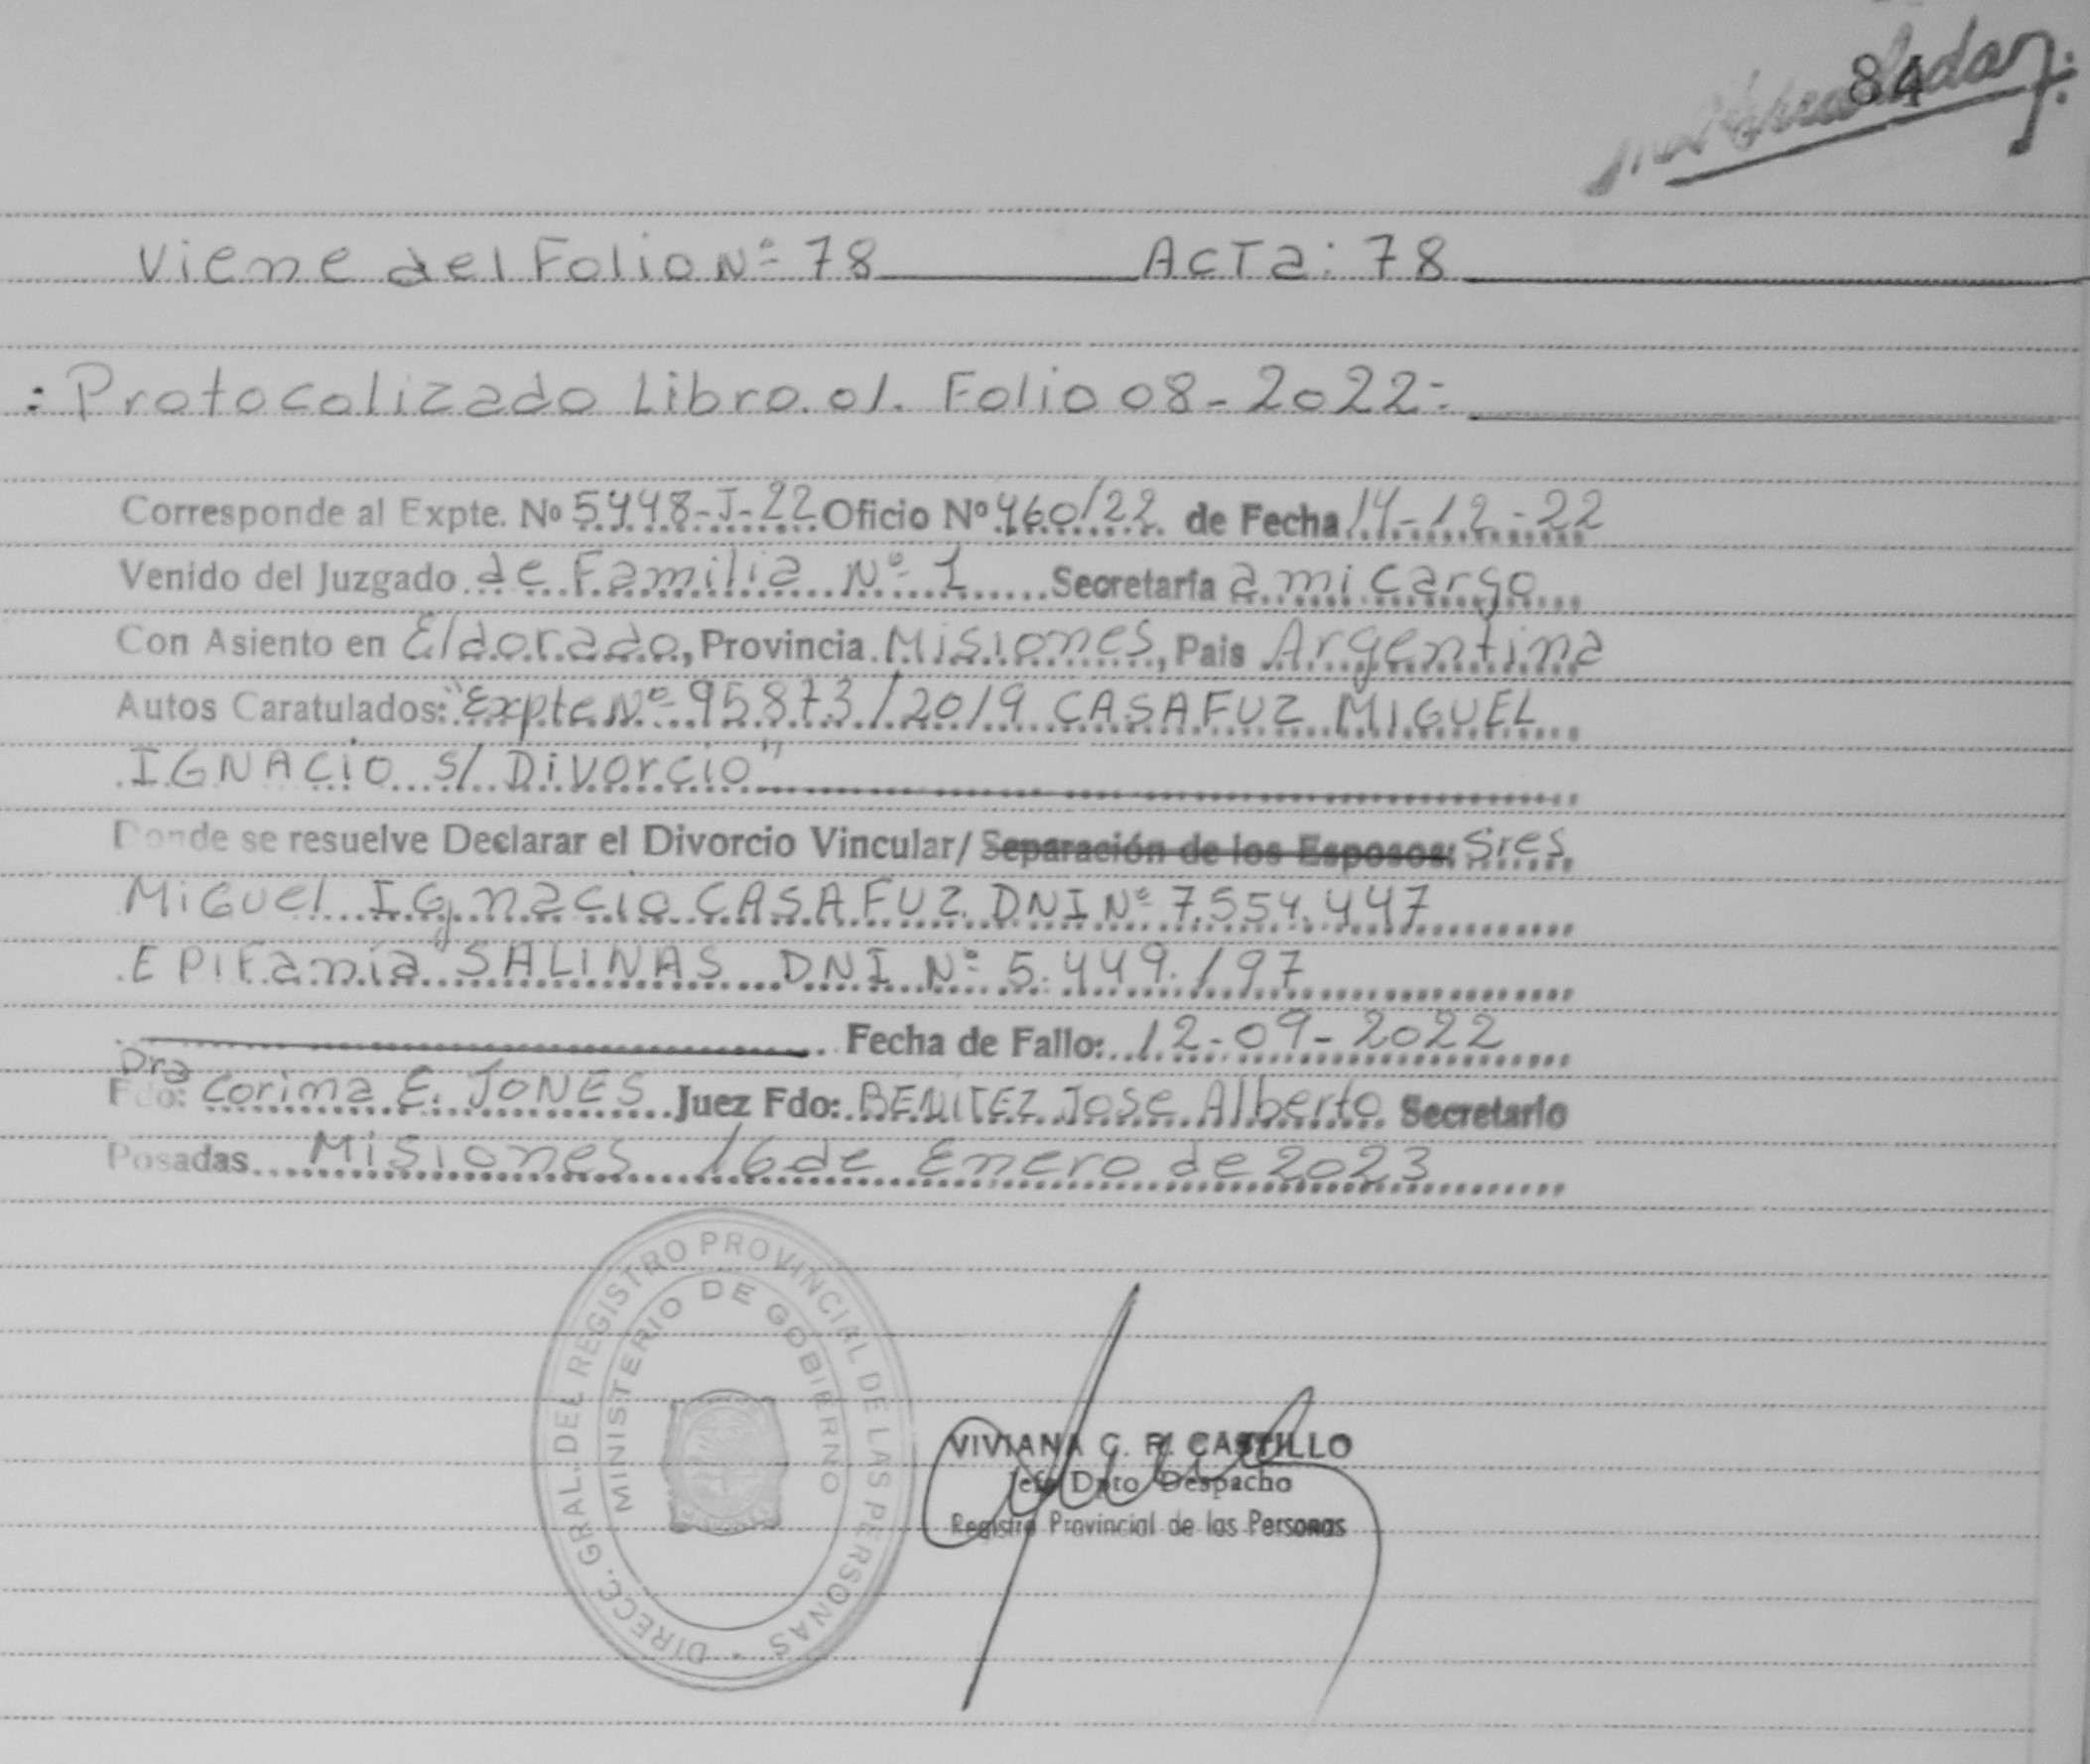 84
Viene del Folio Nº 78 Acta: 78
: Protocolizado Libro. 01. Folio 08-2022=
Corresponde al Expte. Nº 5448-J-22 Oficio Nº 460/22 de Fecha 14-12-22
Venido del Juzgado de Familia Nº 1 Secretaría a mi cargo
Con Asiento en Eldorado, Provincia Misiones, Pais Argentina
Autos Caratulados: "Expte Nº 95873/2019 CASAFUZ MIGUEL
IGNACIO s/ Divorcio"
Donde se resuelve Declarar el Divorcio Vincular/ Separación de los Esposos: Sres
Miguel Ignacio CASAFUZ DNI Nº 7.554.447
EPIFania SALINAS DNI Nº 5.449.197
Fecha de Fallo: 12-09-2022
Dra
Fdo: Corina E. JONES Juez Fdo: BENITEZ Jose Alberto Secretario
Posadas Misiones 16 de Enero de 2023
DIRECC. GRAL. DEL REGISTRO PROVINCIAL DE LAS PERSONAS
MINISTERIO DE GOBIERNO
VIVIANA C. R. CASTILLO
Jefe Dpto Despacho
Registro Provincial de las Personas